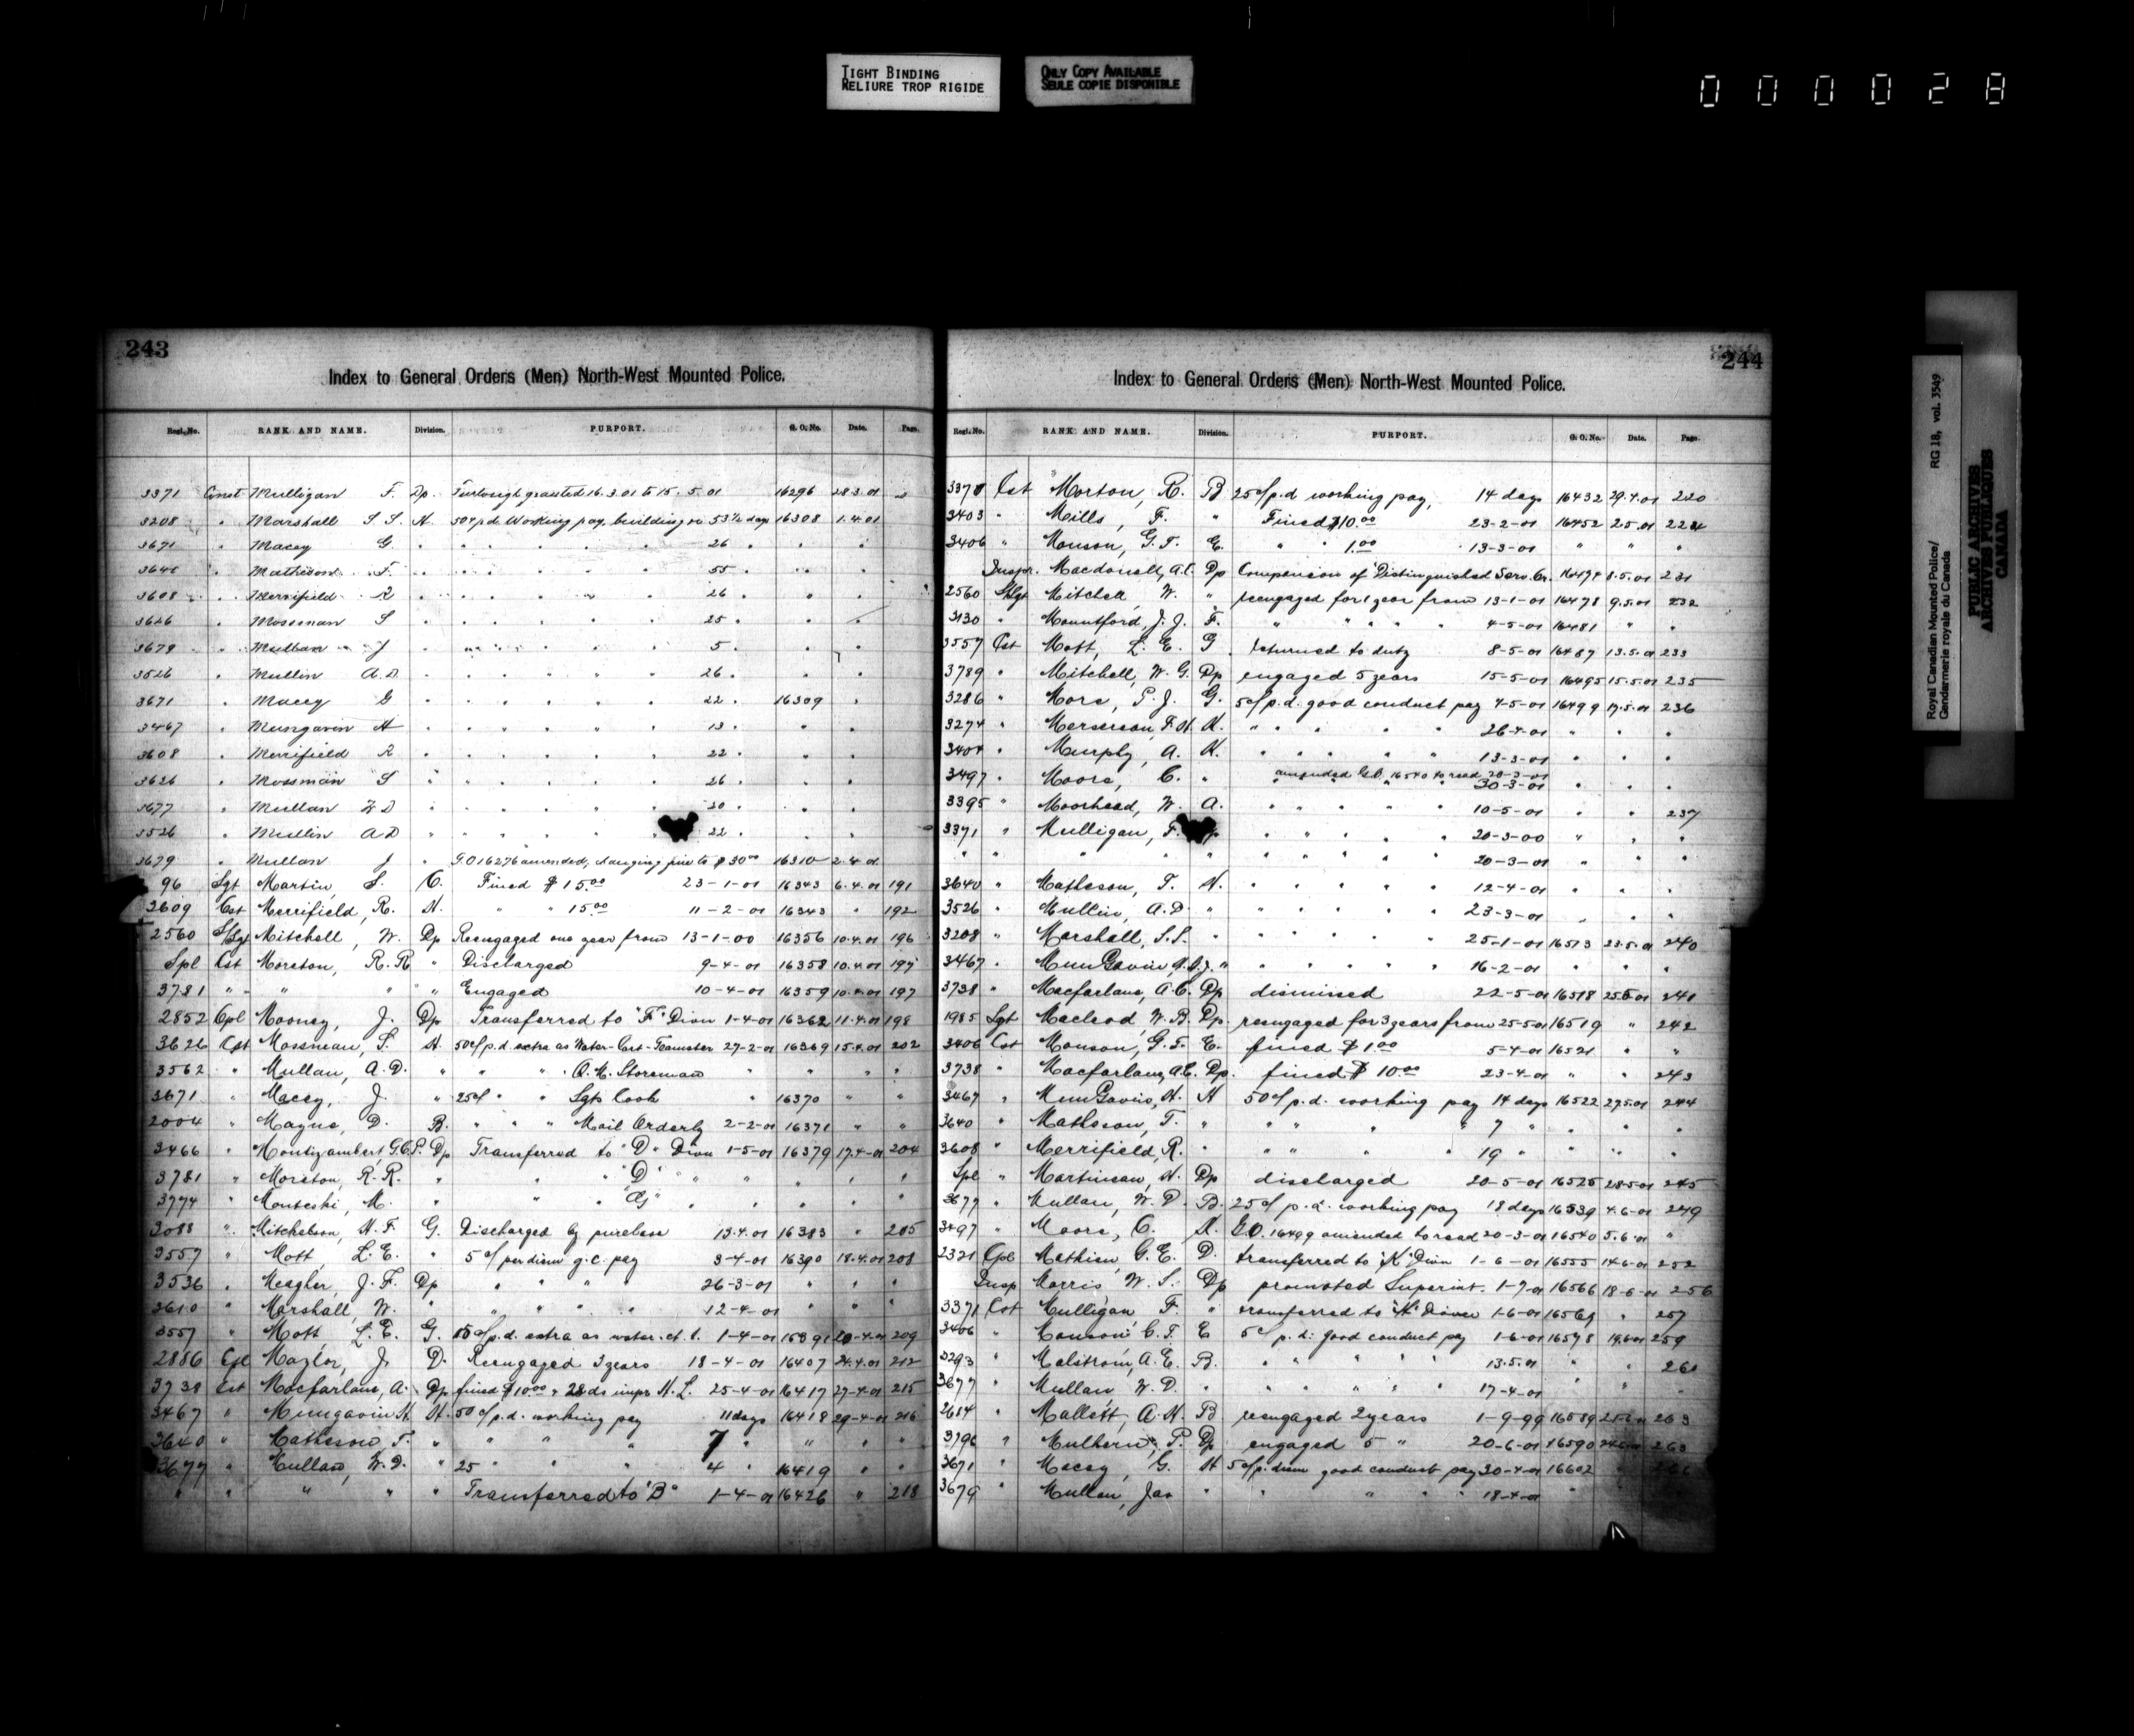 TIGHT BINDING
RELIURE TROP RIGIDE
ONLY COPY AVAILABLE
SEULE COPIE DISPONIBLE
000028
243
Index to General Orders (Men) North-West Mounted Police.
Regl. No. RANK AND NAME. Division. PURPORT. G. O. No. Date. Page.
3371 Const Mulligan F. Dp. Furlough granted 16.3.01 to 15.5.01 16296 28.3.01
3208 " Marshall S.S. H. 50¢ p.d. Working pay, building &c 53½ days 16308 1.4.01
3671 " Macey G. " " " " " 26 " " "
" Matheson F. " " " " " 55 " " "
3608 " Merrifield R " " " " " 26 " " "
3626 " Mossman S " " " " " 25 " " "
3679 " Mullan J " " " " " 5 " " "
3526 " Mullin A.D. " " " " " 26 " " "
3671 " Macey G " " " " " 22 " 16309 "
3467 " Mungavin H " " " " " 13 " " "
3608 " Merrifield R " " " " " 22 " " "
3626 " Mossman S " " " " " 26 " " "
3677 " Mullan W D " " " " " 30 " " "
3526 " Mullin A D " " " " " 22 " " "
3679 " Mullan J " G.O 16276 amended, changing fine to $30.00 16310 2.4.01
96 Sgt Martin, S. C. Fined $15.00 23-1-01 16343 6.4.01 191
3609 Cst Merrifield, R. H. " " 15.00 11-2-01 16343 " 192
2560 S/Sgt Mitchell, W. Dp Reengaged one year from 13-1-00 16356 10.4.01 196
Spl Cst Moreton, R.R " Discharged 9-4-01 16358 10.4.01 197
3781 " " " " Engaged 10-4-01 16359 10.4.01 197
2852 Cpl Mooney, J. Dp Transferred to "F" Divn 1-4-01 16362 11.4.01 198
3626 Cst Mossman, S. H. 50¢ p.d. extra as Water-Cart-Teamster 27-2-01 16369 15.4.01 202
3562 " Mullan, A.D. " " " " Q.M. Storeman " " " "
3671 " Macey, J. " 25¢ " " Sgts Cook " 16370 " "
2004 " Mayne, D. B. " " " Mail Orderly 2-2-01 16371 " "
3466 " Montizambert, G.C.P. Dp Transferred to "D" Divn 1-5-01 16379 17.4.01 204
3781 " Moreton, R.R. " " "D" " " " " "
3774 " Monteski, M. " " "G" " " " " "
3088 " Mitchelson, H.F. G. Discharged by purchase 13.4.01 16383 " 205
3557 " Mott, L.E. " 5¢ per diem g.c. pay 3-4-01 16390 18.4.01 208
3536 " Meagher, J.F. Dp " " " 26-3-01 " " "
3610 " Marshall, W. " " " " " 12-4-01 " " "
3557 " Mott, L.E. G. 15¢ p.d. extra as water ct. t. 1-4-01 16391 20-4-01 209
2886 Cpl Maylor, J. D. Reengaged 3 years 18-4-01 16407 24.4.01 212
3738 Cst Macfarlane, A. Dp fined $10.00 & 28 ds impr H.L. 25-4-01 16417 27-4-01 215
3467 " Mungavin H. H. 50¢ p.d. working pay 11 days 16418 29-4-01 216
3640 " Matheson, T. " " " " 7 " " " "
3677 " Mullan, W.D. " 25 " " " 4 " 16419 " "
" " " " " Transferred to "B" 1-4-01 16426 " 218
244
Index to General Orders (Men) North-West Mounted Police.
Regl. No. RANK AND NAME. Division. PURPORT. G. O. No. Date. Page.
Cst Morton, R. B 25¢ p.d working pay, 14 days 16432 29.4.01 220
3403 " Mills, F. " Fined $10.00 23-2-01 16452 2.5.01 224
3406 " Monson, G.F. E. " " 1.00 13-3-01 " " "
Inspr. Macdonell, A.C. Dp Companion of Distinguished Serv. Or. 16474 8.5.01 231
2560 S/Sgt Mitchell W. " reengaged for 1 year from 13-1-01 16478 9.5.01 232
3130 " Mountford, J.J. F. " " " " " 4-5-01 16481 " "
3557 Cst Mott, L.E. G returned to duty 8-5-01 16487 13.5.01 233
3789 " Mitchell, W.G. Dp engaged 5 years 15-5-01 16495 15.5.01 235
3286 " More, P.J. G. 5¢ p.d. good conduct pay 4-5-01 16499 17.5.01 236
3274 " Merserean, F.H. K. " " " " " 26-4-01 " " "
3404 " Murphy, A. K. " " " " " 13-3-01 " " "
3497 " Moore, C. " amended G.O. 16540 to read 20-3-01
30-3-01 " " "
3395 " Moorhead, W. A. " " " " " 10-5-01 " " 237
3371 " Mulligan, F. Dp " " " " 20-3-00 " " "
" " " " " " " " " 20-3-01 " " "
3640 " Matheson, T. H. " " " " " 12-4-01 " " "
3526 " Mullin, A.D. " " " " " " 23-3-01 " " "
3208 " Marshall, S.S. " " " " " " 25-1-01 16513 23.5.01 240
3467 " MunGavin " " " " " " 16-2-01 " " "
3738 " Macfarlane, A.C. Dp dismissed 22-5-01 16518 25.5.01 241
1985 Sgt Macleod, W.B. Dp. reengaged for 3 years from 25-5-01 16519 " 242
3406 Cst Monson, G.F. E. fined $1.00 5-4-01 16521 " "
3738 " Macfarlane, A.C. Dp. fined $10.00 23-4-01 " " 243
3467 " MunGavin, H. H 50¢ p.d. working pay 14 days 16522 27.5.01 244
3640 " Matheson, T. " " " " " 7 " " " "
3608 " Merrifield, R. " " " " 19 " " " "
Spl " Martineau, H. Dp discharged 20-5-01 16525 28.5.01 245
3677 " Mullan, W.D. B. 25¢ p.d. working pay 18 days 16539 4.6.01 249
3497 " Moore, C. K. G.O. 16499 amended to read 20-3-01 16540 5.6.01 "
2321 Cpl Mathieu G.E. D. transferred to "K" Divn 1-6-01 16555 14.6.01 252
Insp Morris W.S. Dp promoted Superint. 1-7-01 16566 18-6-01 256
3371 Cst Mulligan F. " transferred to "H" Division 1-6-01 16569 " 257
3406 " Monson G.F. E 5¢ p.d. good conduct pay 1-6-01 16578 19.6.01 259
3293 " Malstrom, A.E. B. " " " " 13.5.01 " " 261
3677 " Mullan W.D. " " " " " " 17-4-01
2614 " Mallett, A.H. B reengaged 2 years 1-9-99 16589 263
3796 " Mulhern, P. Dp engaged 5 " 20-6-01 16590 263
3671 " Macey, G. H 5¢ p. diem good conduct pay 30-4-01 16602
3679 " Mullan, Jas " " " " " 18-4-01
Royal Canadian Mounted Police/
Gendarmerie royale du Canada
RG 18, vol. 3549
PUBLIC ARCHIVES
ARCHIVES PUBLIQUES
CANADA